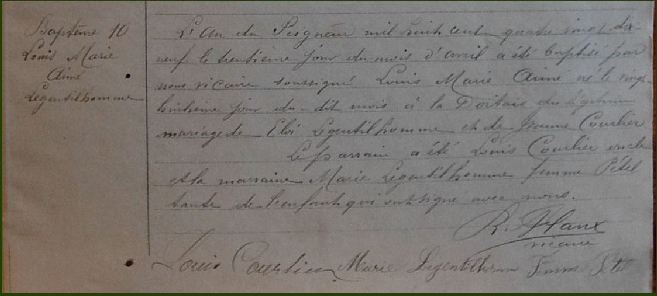 Baptême 10
Louis Marie
Aimé
Legentilhomme
L'An du Seigneur mil huit cent quatre vingt dix
neuf le trentième jour du mois d'avril a été baptisé par
nous vicaire soussigné Louis Marie Aimé né le vingt
huitième jour du dit mois à la du légitime
mariage de Eloi Legentilhomme et de Jeanne Courlier
Le parrain a été Louis Courlier oncle
et la marraine Marie Legentilhomme femme Pétel
tante de l'enfant qui ont signé avec nous.
R.
vicaire
Louis Marie Legentilhomme Femme